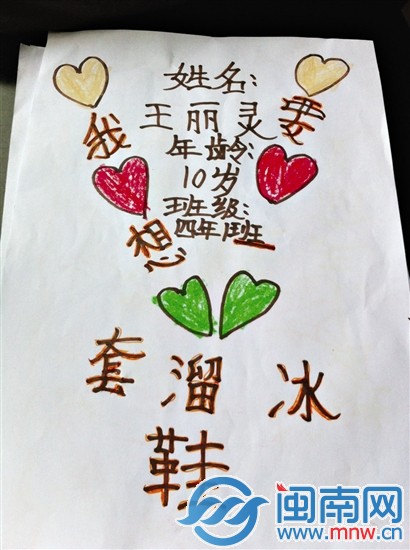 姓名:
王丽灵
年龄:
10岁
班级:
四年1班
我想要
套溜冰
鞋
闽南网
www.mnw.cn